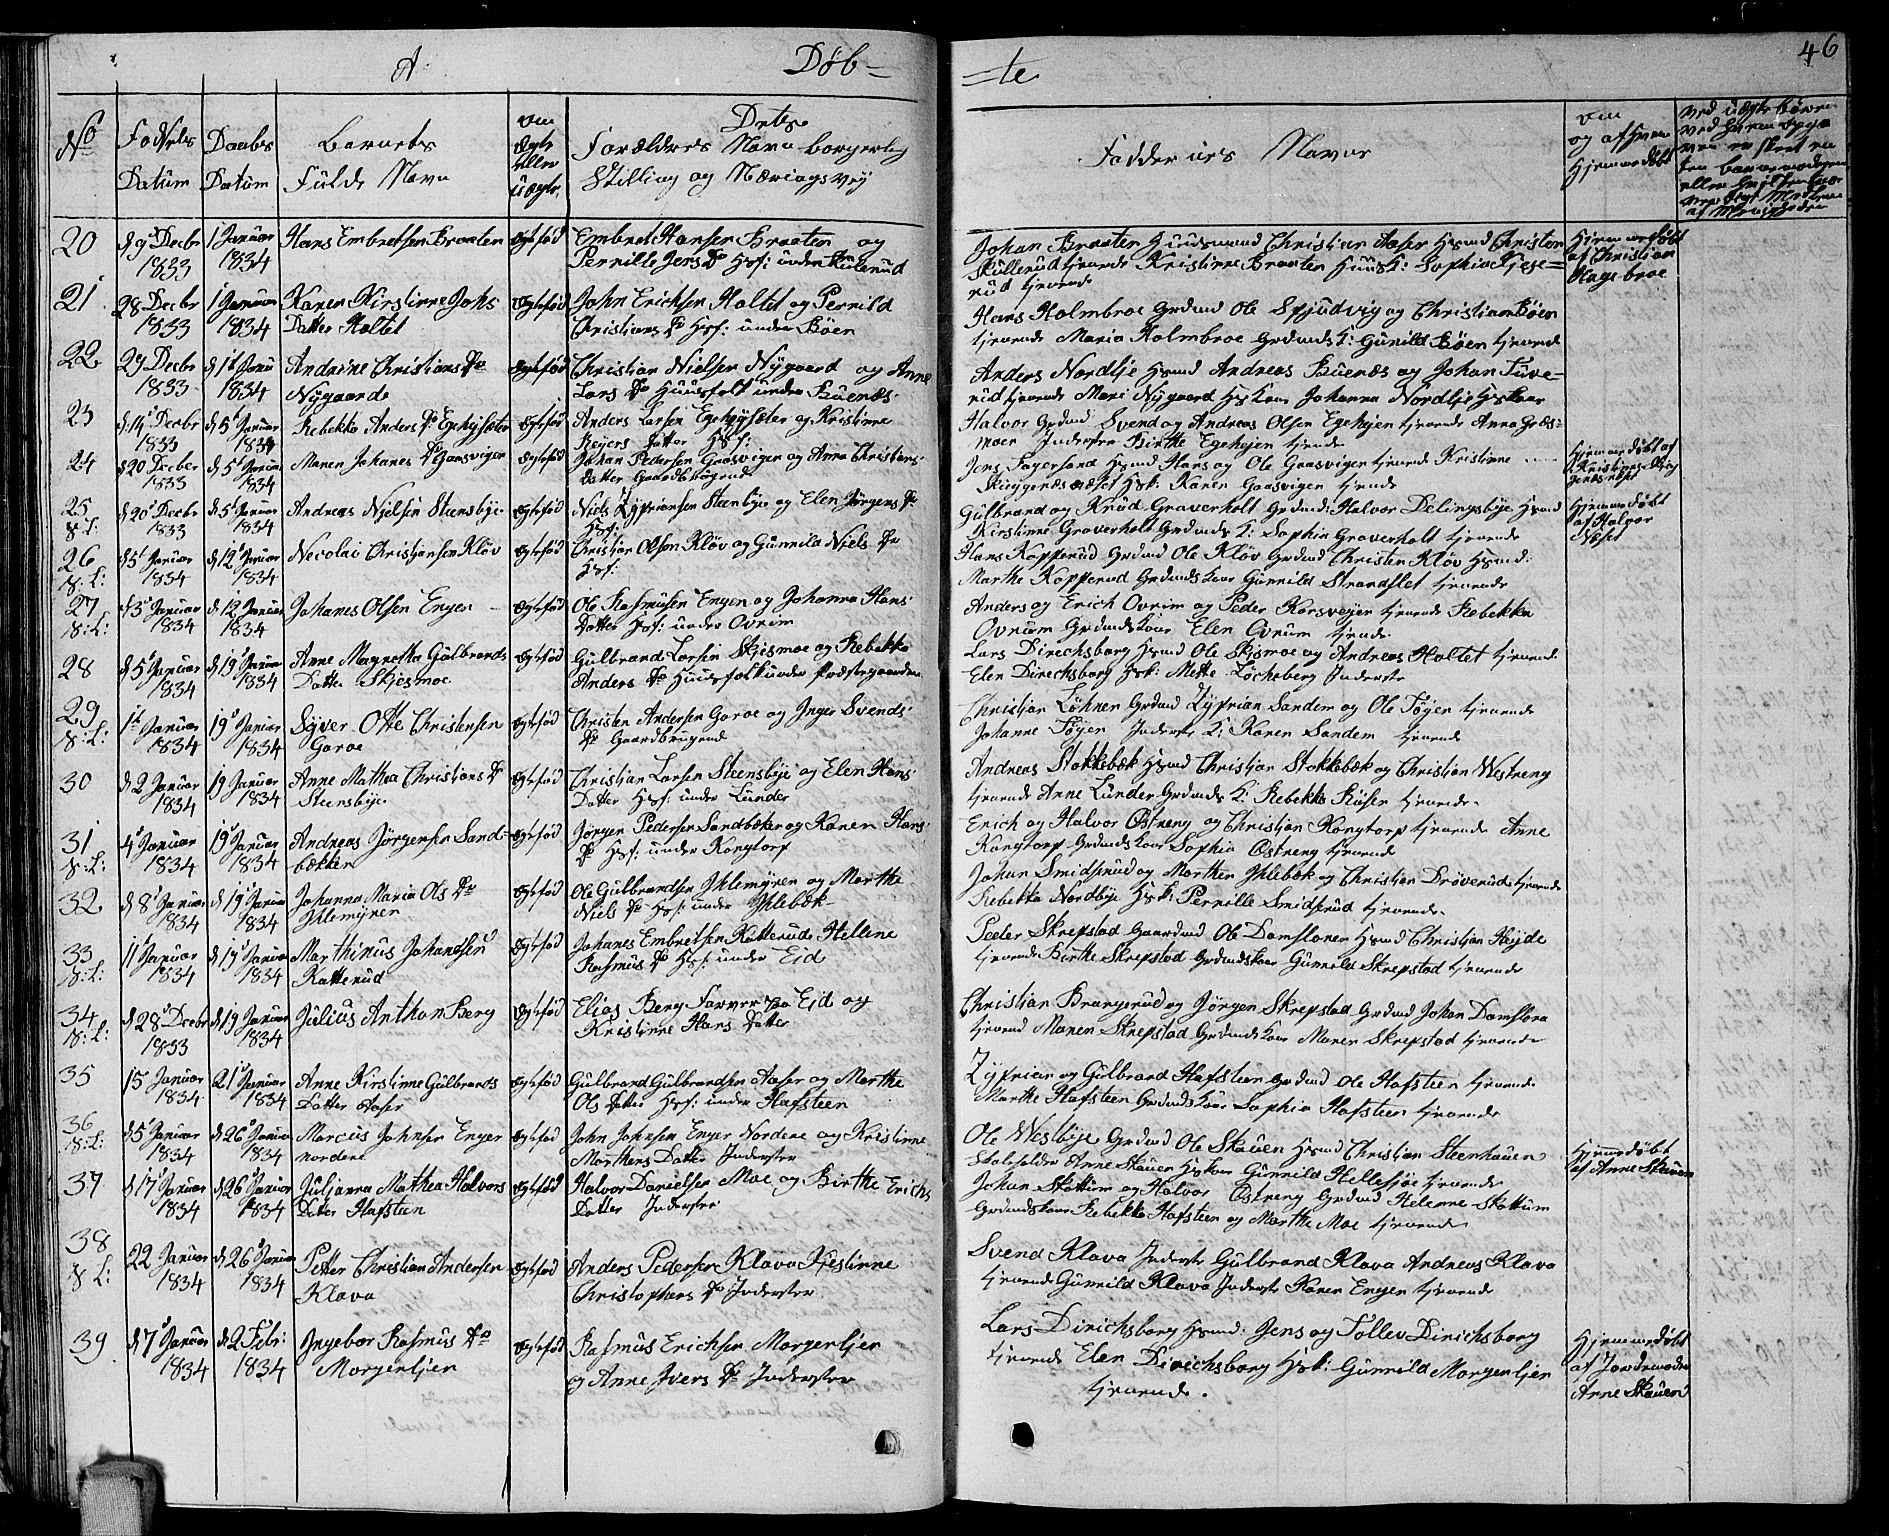 A
Døb-
=te.
46
No
Fødsels
Datum
Daabs
Datum
Barnets
Fulde Navn
om
Ægte
eller
Uægte
Dets
Forældres Navn borgerlig
Stilling og Næringsvej
Faddernes Navne
om
og af hvem
hjemmedøbt
20
d 9' Decbr
1833
1 Januar
1834
Hans Embretsen Braaten
Ægtefød
Embret Hansen Braaten og
Pernille Jens Dr Hsf: under Skulerud
Johan Braaten Huusmand Christian Aaser Hsmd Christen
Skullerud tjenende Kristinne Braaten Huusk: Sophia
rud tjenende
Hjemmedøbt
af Christian
Hagebroe
21
28 Decbr
1833
1 Januar
1834
Karen Kirstinne Johs
Datter Holtet
Ægtefød
John Erichsen Holtet og Pernild
Christians Dr Hsf: under Böen
Hans Holmbroe Grdmd Ole Spjudvig og Christian Böen
tjenende Maria Holmbroe Grdmds K: Gunild Böen tjenende
22.
29 Decbr
1833
d 1t Janu
1834
Andrine Christians Dr
Nygaard
Ægtefød
Christian Nielsen Nygaard og Anne
Lars Dr Huusfolk under Buenæs
Anders Nordlje Hsmd Andreas Buenæs og Johan Tuve-
rud tjenende Mari Nygaard Hskone Johanna Nordlje Hskone
23
d 14 Decbr
1833
d 5' Januar
1834
Rebekka Anders Dr Egehysæter
Ægtefød
Anders Larsen Egehysæter og Kristinne
Rejers Datter Hsf:
Halvor Grdmd Svend og Andreas Olsen Egehejen tjenende Anna Græs-
moer Inderste Birthe Egehejen tjenende
24
d 20 Decber
1833
d 5' Januar
1834
Maren Johanes Dr Gaasvigen
Ægtefød
Johan Pedersen Gaasvigen og Anna Christians
Datter Gaardbrugend
Jens Hsmd Hans og Ole Gaasvigen tjenende Kristinne
Skuggenæsæset Hsk: Karen Gaasvigen tjenende
Hjemmedøbt af
Kristinne Skug
genæsæset
25
S:L:
d 20 Decbr
1833
d 5' Januar
1834
Andreas Nielsen Steensbye
Ægtefød
Niels Zypriansen Steensbye og Elen Jørgens Dr
Hsf:
Gulbrand og Knud Graverholt Grdmd: Halvor Delingsbye Hsmd
Kirstinne Graverholt Grdmds K: Sophia Graverholt tjenende
Hjemmedøbt
af Halvor
Næset
26
S:L:
d 5' Januar
1834
d 12 Januar
1834
Nicolai Christiansen Kløv
Ægtefød
Christian Olsen Kløv og Gunnild Niels Dr
Hsf:
Hans Kopperud Grdmd Ole Kløv Grdmd Christen Kløv Hsmd:
Marthe Kopperud Grdmds Kone Gunnild Strandslet tjenende
27
S:L:
d 3' Januar
1834
d 12 Januar
1834
Johanes Olsen Engen
Ægtefød
Ole Rasmusen Engen og Johanna Hans
Datter Hsf: under Ovrim
Anders og Erich Ovrim og Peder Korsvegen tjenende Rebekka
Ovrum Grdmds Kone Elen Ovrum tjenende
28
d 5' Januar
1834
d 19' Januar
1834
Anne Magretha Gulbrands
Datter Skjesmoe
Ægtefød
Gulbrand Larsen Skjesmoe og Rebekka
Anders Dr Huusfolk under Præstegaarden
Lars Dirichsborg Hsmd Ole Skjesmoe og Andreas Holtet tjenende
Elen Dirichsborg Hsk: Mette Löcheberg Inderste
29
S:L:
1t Januar
1834
19' Januar
1834
Syver Otto Christensen
Garoe
Ægtefød
Christen Andersen Garoe og Inger Svends
Dr Gaardbrugend
Christian Löhner Grdmd Zyprian Sandem og Ole Töyen tjenende
Johanne Töyen Inderste K: Karen Sandem tjenende
30
d 2 Januar
1834
19 Januar
1834
Anne Mathea Christians Dr
Steensbye
Ægtefød
Christian Larsen Steensbye og Elen Hans
Datter Hsf: under Lunder
Andreas Stokkebæk Hsmd Christian Stokkebæk og Christian Westreng
tjenende Anne Lunder Grdmds K: Rebekka Riiser tjenende
31
S:L:
4' Januar
1834
19' Januar
1834
Andreas Jørgensen Sand=
bækken
Ægtefød
Jørgen Pedersen Sandbæken og Karen Hans
Dr Hsf: under Kongtorp
Erich og Halvor Østreng og Christian Kongtorp tjenende Anne
Kongtorp Grdmds Kone Sophia Østreng tjenende
32
d 8' Januar
1834
d 19' Januar
1834
Johanna Maria Ols Dr
Ihlemyren
Ægtefød
Ole Gulbrandsen Ihlemyren og Marthe
Niels Dr Hsf: under Ihlebæk
Johan Smidsrud og Morthen Ihlebæk og Christian Drøverud tjenende
Rebekka Nordbye Hsk: Pernille Smidsrud tjenende
33
S:L:
11' Januar
1834
d 19' Januar
1834
Marthinus Johansen
Katterud
Ægtefød
Johanes Embretsen Katterud Hellene
Rasmus Dr Hsf: under Eid
Peder Skrepstad Gaardmd Ole Damslora Hsmd Christian Høyde
tjenende Birthe Skrepstad Grdmdskone Gunnild Skrepstad tjenende
34
S:L:
d 28' Decbr
1833
d 19 Januar
1834
Julius Anthon Berg
Ægtefød
Elias Berg Farver paa Eid og
Kristinne Hans Datter
Christian Brangerud og Jørgen Skrepstad Grdmd Johan Damslora
tjenend Maren Skrepstad Grdmds Kone Maren Skrepstad tjenende
35
15 Januar
1834
21' Januar
1834
Anne Kirstinne Gulbrands
Datter Aaser
Ægtefød
Gulbrand Gulbrandsen Aaser og Marthe
Ols Datter Hsf: under Hafsteen
Zyprian og Gulbrand Hafsteen Grdmd Ole Hafsteen tjenende
Marthe Hafsteen Grdmds Kone Sophia Hafsteen tjenende
36
S:L:
d 5' Januar
1834
d 26' Januar
1834
Marcus Johnsen Enger
nordere
Ægtefød
John Johnsen Enger Nordere og Kristinne
Morthens Datter Inderster
Ole Westbye Grdmd Ole Skauen Hsmd Christian Steenhauen
Skoleholder Anne Skauen Hskone Gunnild Hellesjøe tjenende
Hjemmedøbt
af Anne Skauen
37
d 17' Januar
1834
d 26' Januar
1834
Julianna Mathea Halvors
Datter Hafsteen
Ægtefød
Halvor Danielsen Moe og Birthe Erichs
Datter Inderster
Johan Skattum og Halvor Østreng Grdmd Helenne Skattum
Grdmdskone Rebekka Hafsteen og Marthe Moe tjenende
38
S:L:
22 Januar
1834
d 26' Januar
1834
Petter Christian Andersen
Klava
Ægtefød
Anders Pedersen Klava Kjestinne
Christophers Dr Inderster
Svend Klava Inderste Gulbrand Klava Andreas Klava
tjenende Gunnild Klava Inderste Karen Engen tjenende
39
d 7' Januar
1834
d 2' Febr:
1834
Ingebor Rasmus Dr
Morgentjern
Ægtefød
Rasmus Erichsen Morgentjen
og Anne Ivers Dr Inderster
Lars Dirichsborg Hsmd: Jens og Tollev Dirichsborg
tjenende Elen Dirichsborg Hsk: Gunnild Morgentjen
tjenende.
Hjemmedøbt
af Jordemoder
Anne Skauen